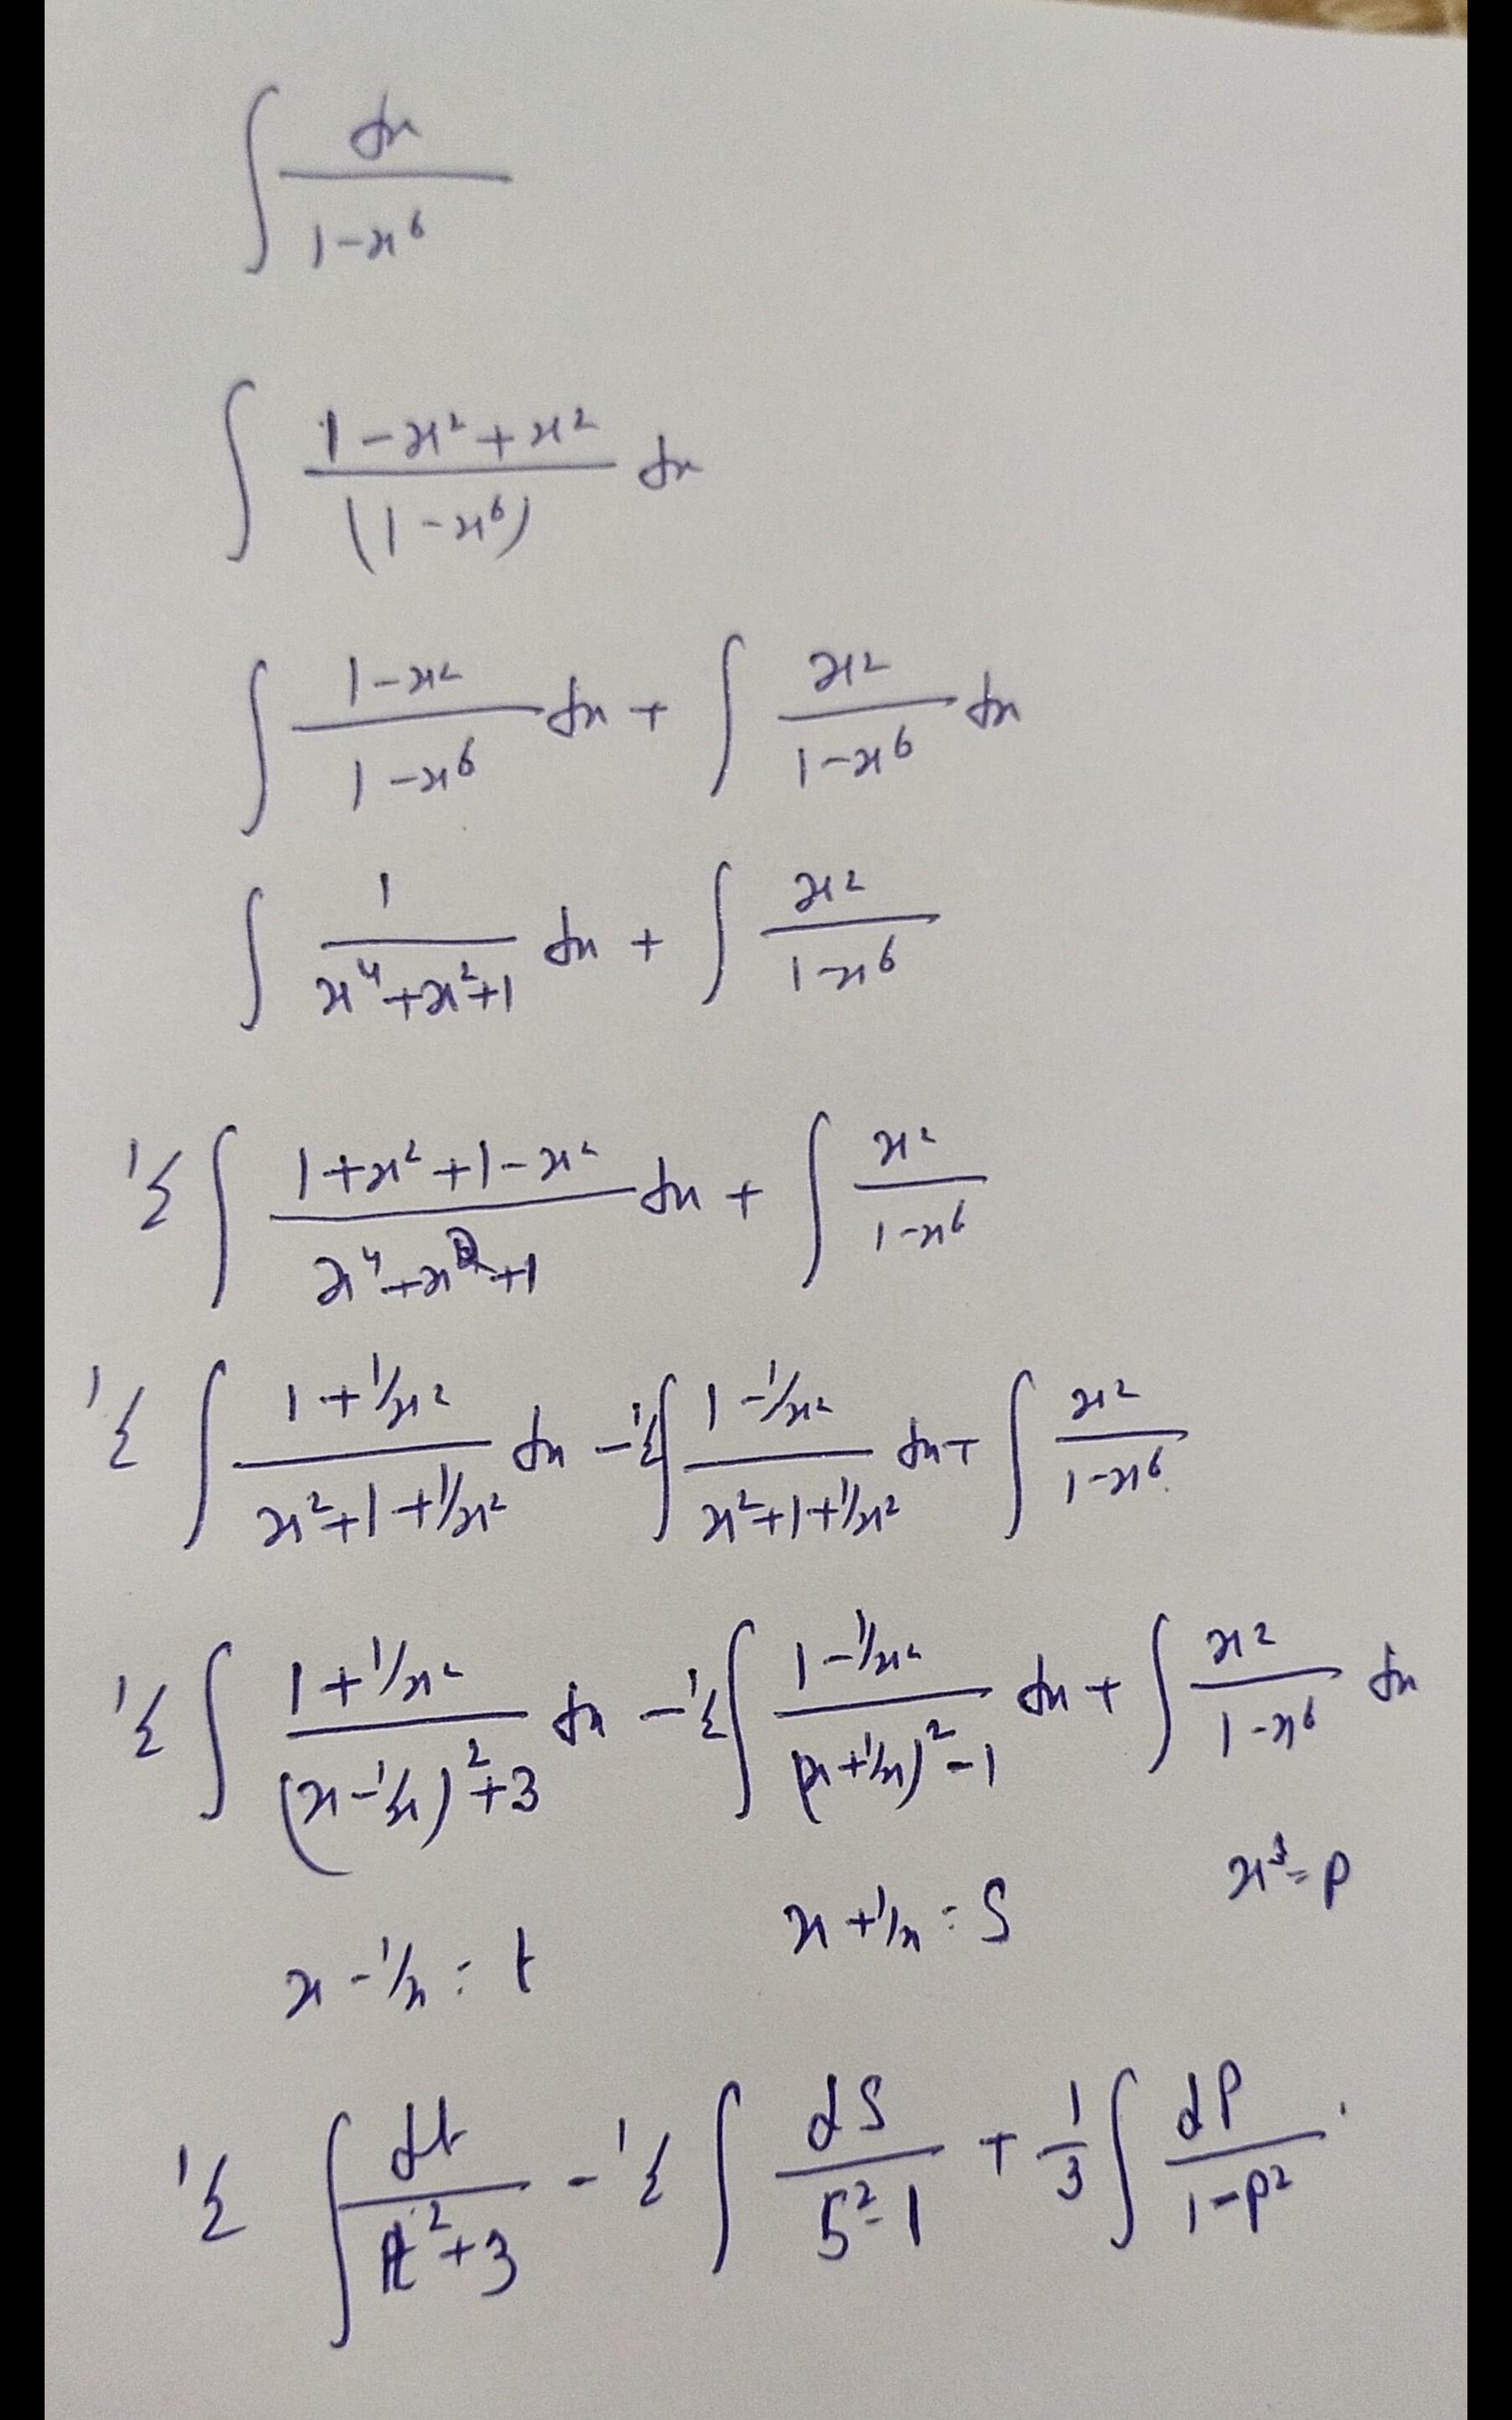 ∫ dx / (1-x⁶)
∫ (1-x²+x²) / (1-x⁶) dx
∫ (1-x²) / (1-x⁶) dx + ∫ x² / (1-x⁶) dx
∫ 1 / (x⁴+x²+1) dx + ∫ x² / (1-x⁶)
1/2 ∫ (1+x²+1-x²) / (x⁴+x²+1) dx + ∫ x² / (1-x⁶)
1/2 ∫ (1+1/x²) / (x²+1+1/x²) dx - 1/2 ∫ (1-1/x²) / (x²+1+1/x²) dx + ∫ x² / (1-x⁶)
1/2 ∫ (1+1/x²) / ((x-1/x)²+3) dx - 1/2 ∫ (1-1/x²) / ((x+1/x)²-1) dx + ∫ x² / (1-x⁶) dx
x-1/x = t x+1/x = S x³=P
1/2 ∫ dt / (t²+3) - 1/2 ∫ dS / (S²-1) + 1/3 ∫ dP / (1-P²)